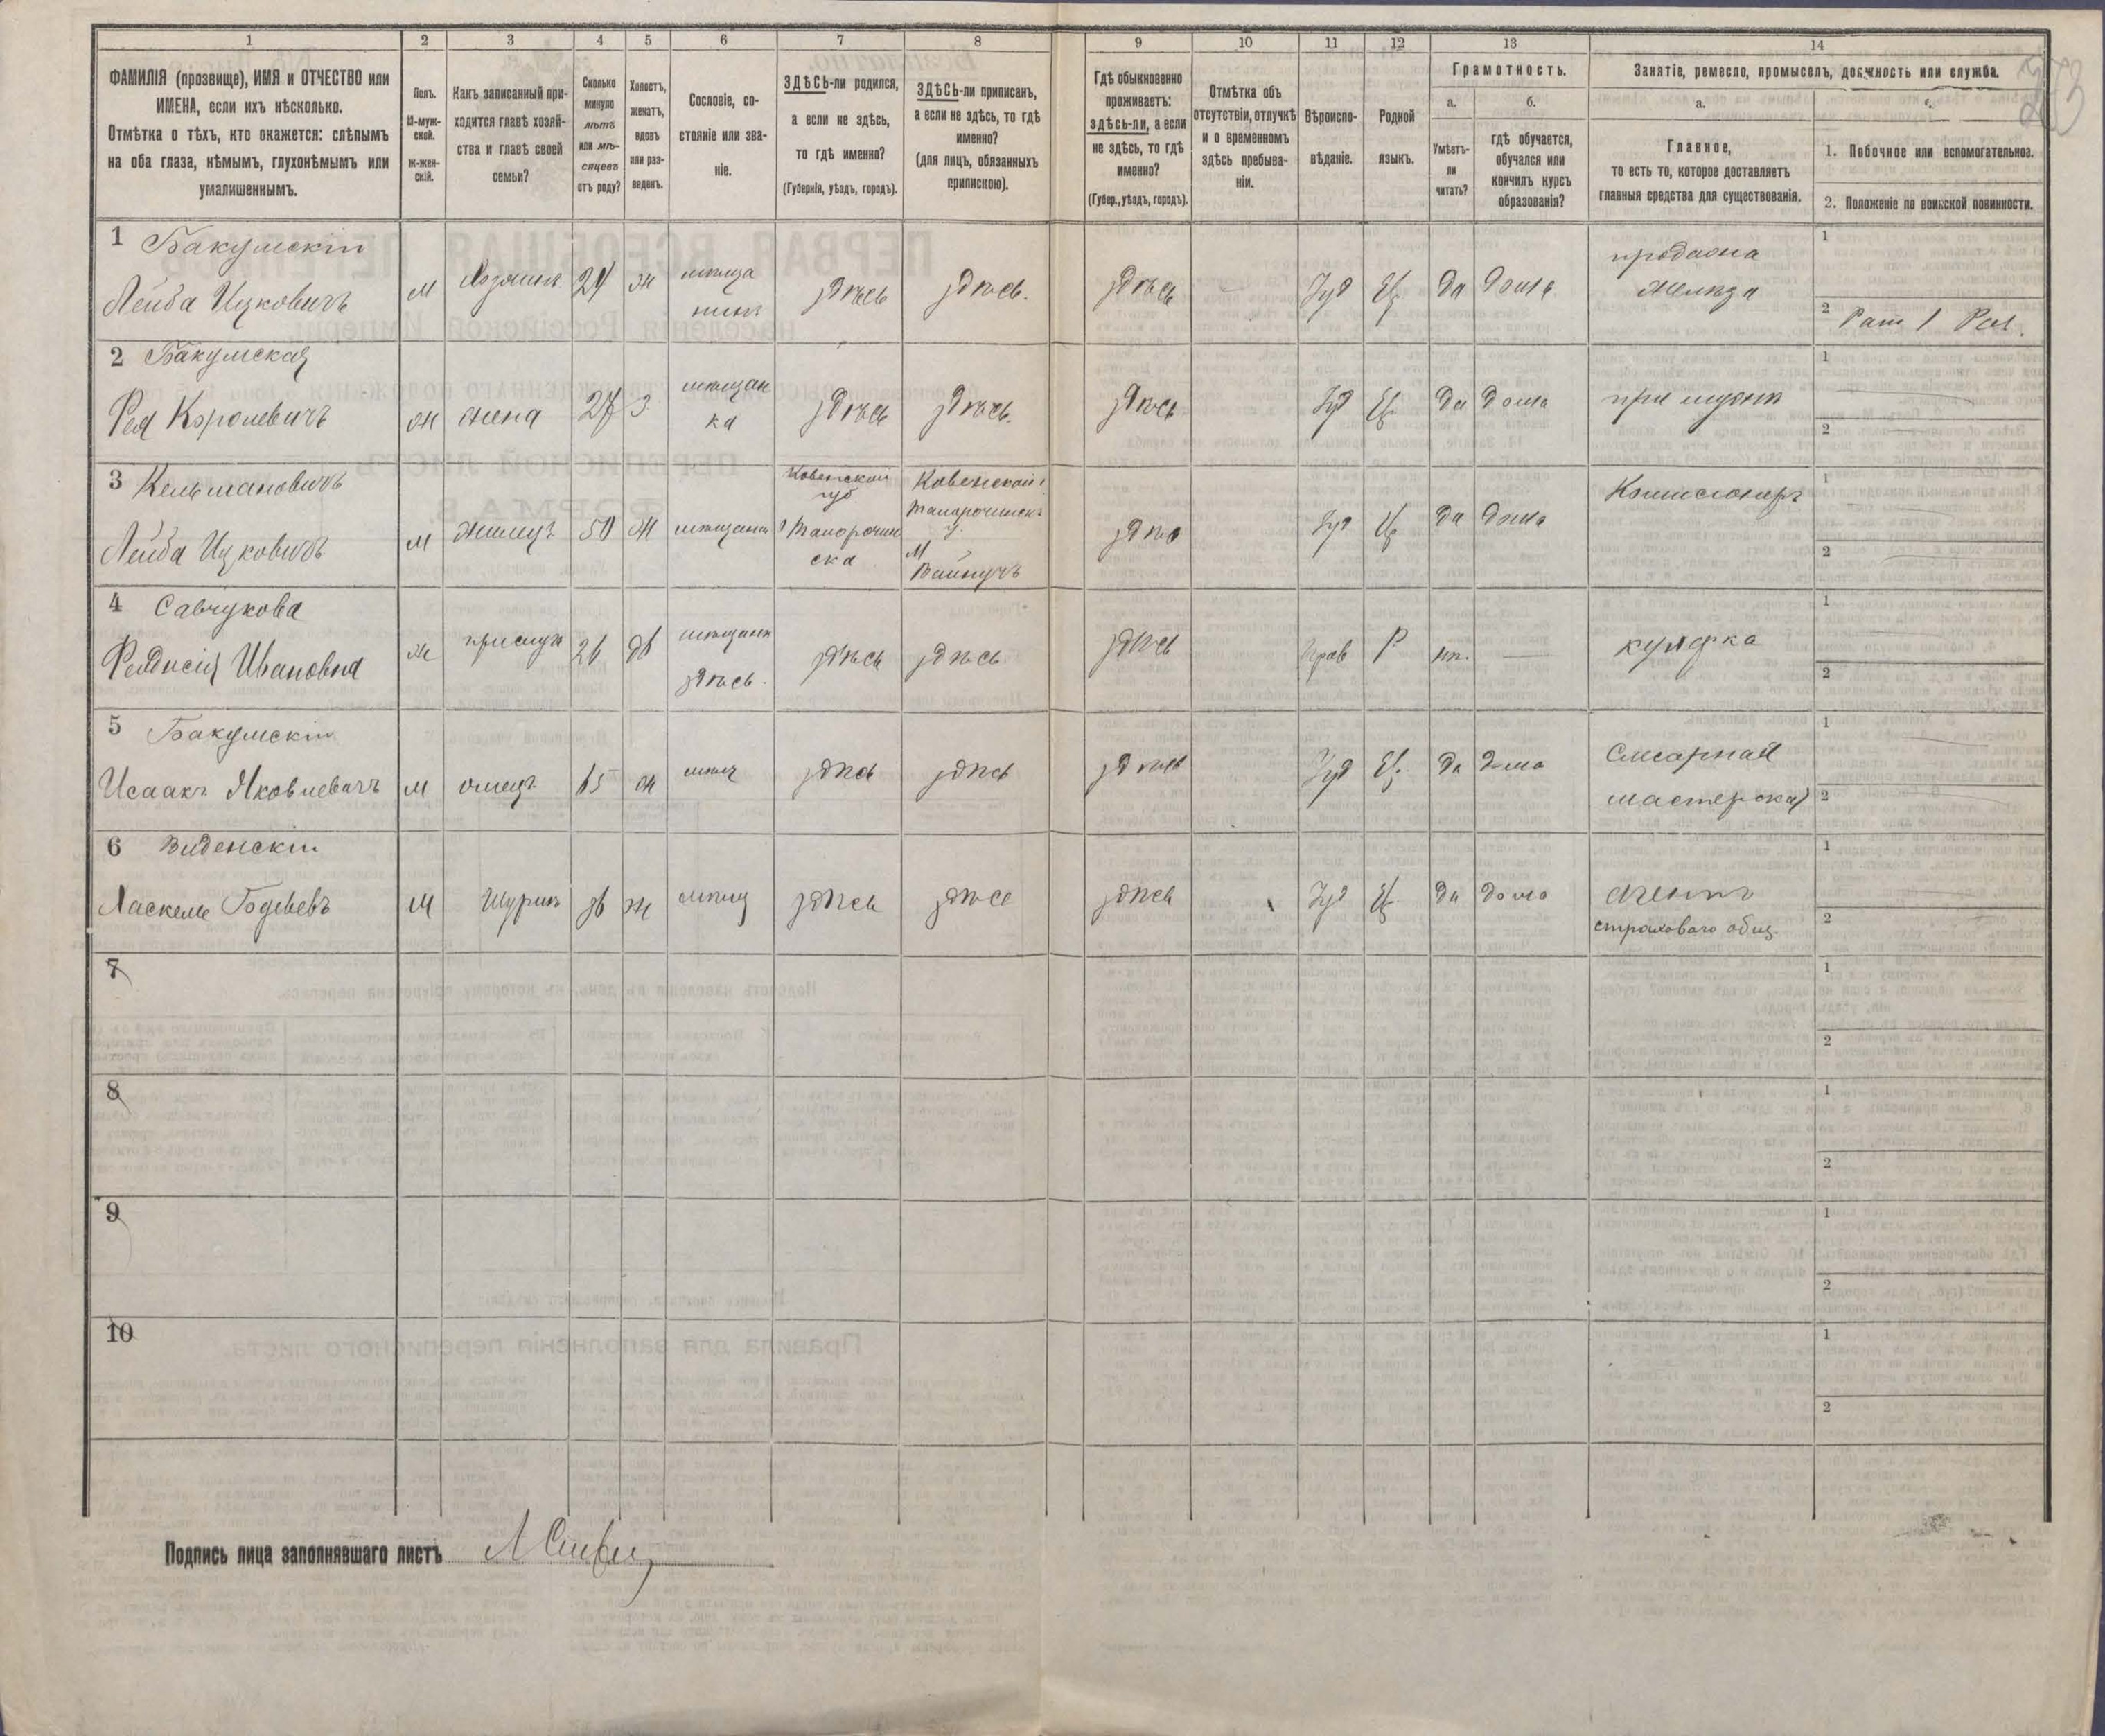 1 2 3 4 5 6 7 8 9 10 11 12 13 14
ФАМИЛІЯ (прозвище), ИМЯ и ОТЧЕСТВО или
ИМЕНА, если ихъ нѣсколько.
Отмѣтка о тѣхъ, кто окажется: слѣпымъ
на оба глаза, нѣмымъ, глухонѣмымъ или
умалишеннымъ.
Полъ.
М-муж-
ской.
Ж-жен-
скій.
Какъ записанный при-
ходится главѣ хозяй-
ства и главѣ своей
семьи?
Сколько
минуло
лѣтъ
или мѣ-
сяцевъ
отъ роду?
Холостъ,
женатъ,
вдовъ
или раз-
веденъ.
Сословіе, со-
стояніе или зва-
ніе.
ЗДѢСЬ-ли родился,
а если не здѣсь,
то гдѣ именно?
(Губернія, уѣздъ, городъ).
ЗДѢСЬ-ли приписанъ,
а если не здѣсь, то гдѣ
именно?
(для лицъ, обязанныхъ
припискою).
Гдѣ обыкновенно
проживаетъ:
здѣсь-ли, а если
не здѣсь, то гдѣ
именно?
(Губер., уѣздъ, городъ).
Отмѣтка объ
отсутствіи, отлучкѣ
и о временномъ
здѣсь пребыва-
ніи.
Вѣроиспо-
вѣданіе.
Родной
языкъ.
Грамотность.
а.
Умѣетъ-
ли
читать?
б.
гдѣ обучается,
обучался или
кончилъ курсъ
образованія?
Занятіе, ремесло, промыселъ, должность или служба.
а.
Главное,
то есть то, которое доставляетъ
главныя средства для существованія.
1. Побочное или вспомогательное.
2. Положеніе по воинской повинности.
1 Бакумскій
Лейба Ицковичъ
м
Хозяинъ
24
ж
мѣща
нинъ
здѣсь
здѣсь.
здѣсь
Іуд
Ев
да
дома
продажа
желѣза
1
2
Рат 1 Раз.
2 Бакумская
ж
жена
27
З
мѣщан
ка
здѣсь
здѣсь.
здѣсь
Іуд
Ев
да
дома
при мужѣ
1
2
3 Кельмановичъ
Лейба Ицковичъ
м
жилецъ
50
ж
мѣщани
Ковенской
губ
Ковенской
у.
м
здѣс
Іуд
Ев
да
дома
Комисіонеръ
1
2
4 Савчукова
Ивановна
ж
прислуга
26
дв
мѣщанк
здѣсь.
здѣсь
здѣсь
здѣсь
Прав
Р
нѣ.
кухарка
1
2
5 Бакумскій
Исаакъ Яковлевичъ
м
отецъ
65
ж
мѣщ
здѣсь
здѣсь
здѣсь
Іуд
Ев
да
дома
Слесарная
мастерская
1
2
6 Виденскій
м
Шуринъ
ж
мѣщ
здѣсь
здѣсь
здѣсь
Іуд
Ев
да
дома
агентъ
страховаго общ.
1
2
7
1
2
8
1
2
9
1
2
10
1
2
Подпись лица заполнявшаго листъ